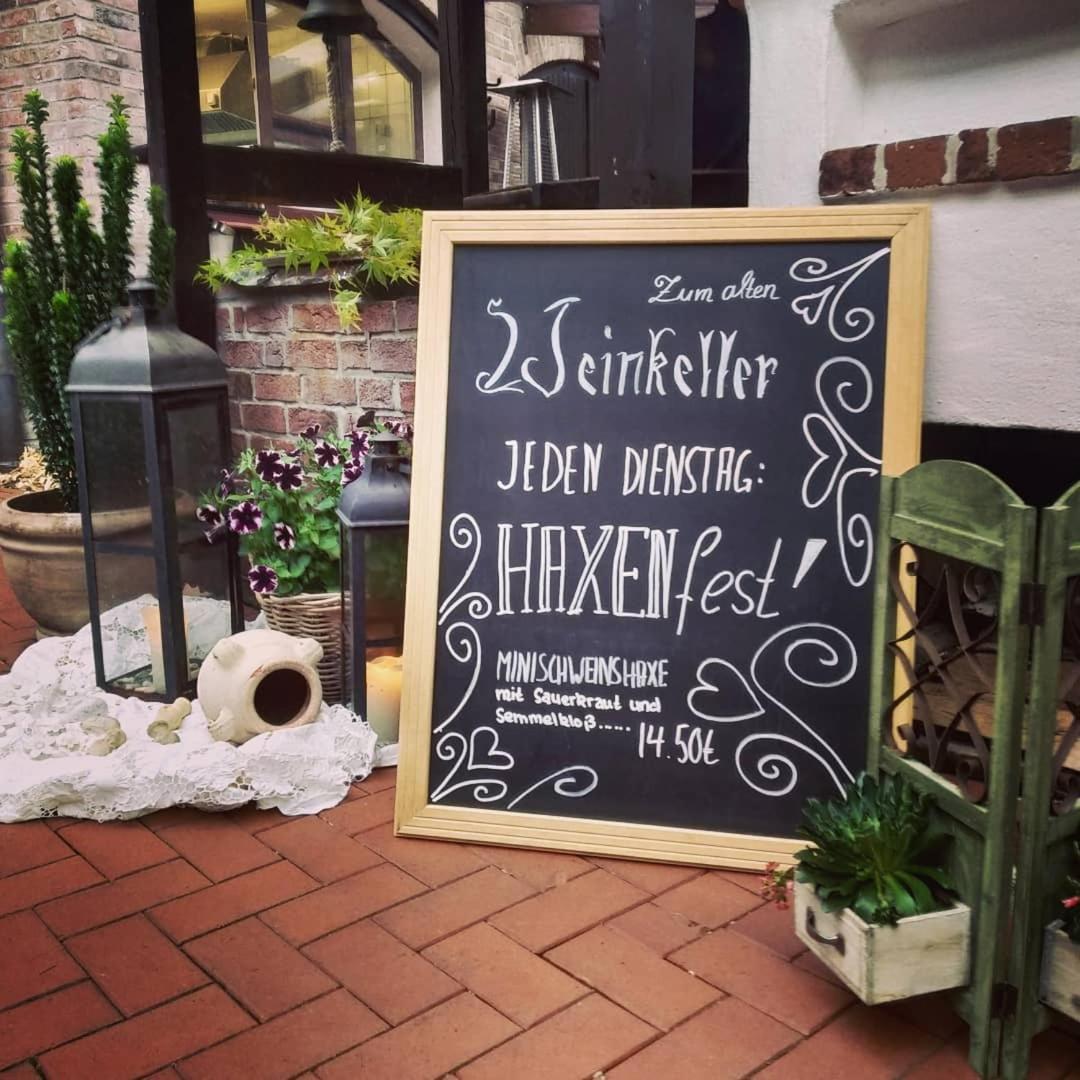 Zum alten
Weinkeller
JEDEN DIENSTAG:
HAXENfest'
MINISCHWEINSHAXE
mit Sauerkraut und
Semmelkloß.....
14.50€